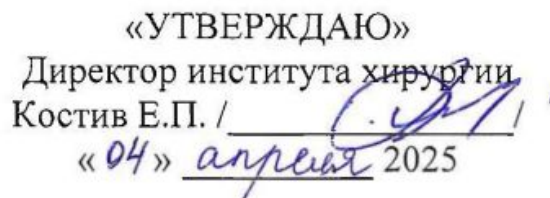 «УТВЕРЖДАЮ»
Директор института хирургии
Костив Е.П. /
« 04 » апреля 2025